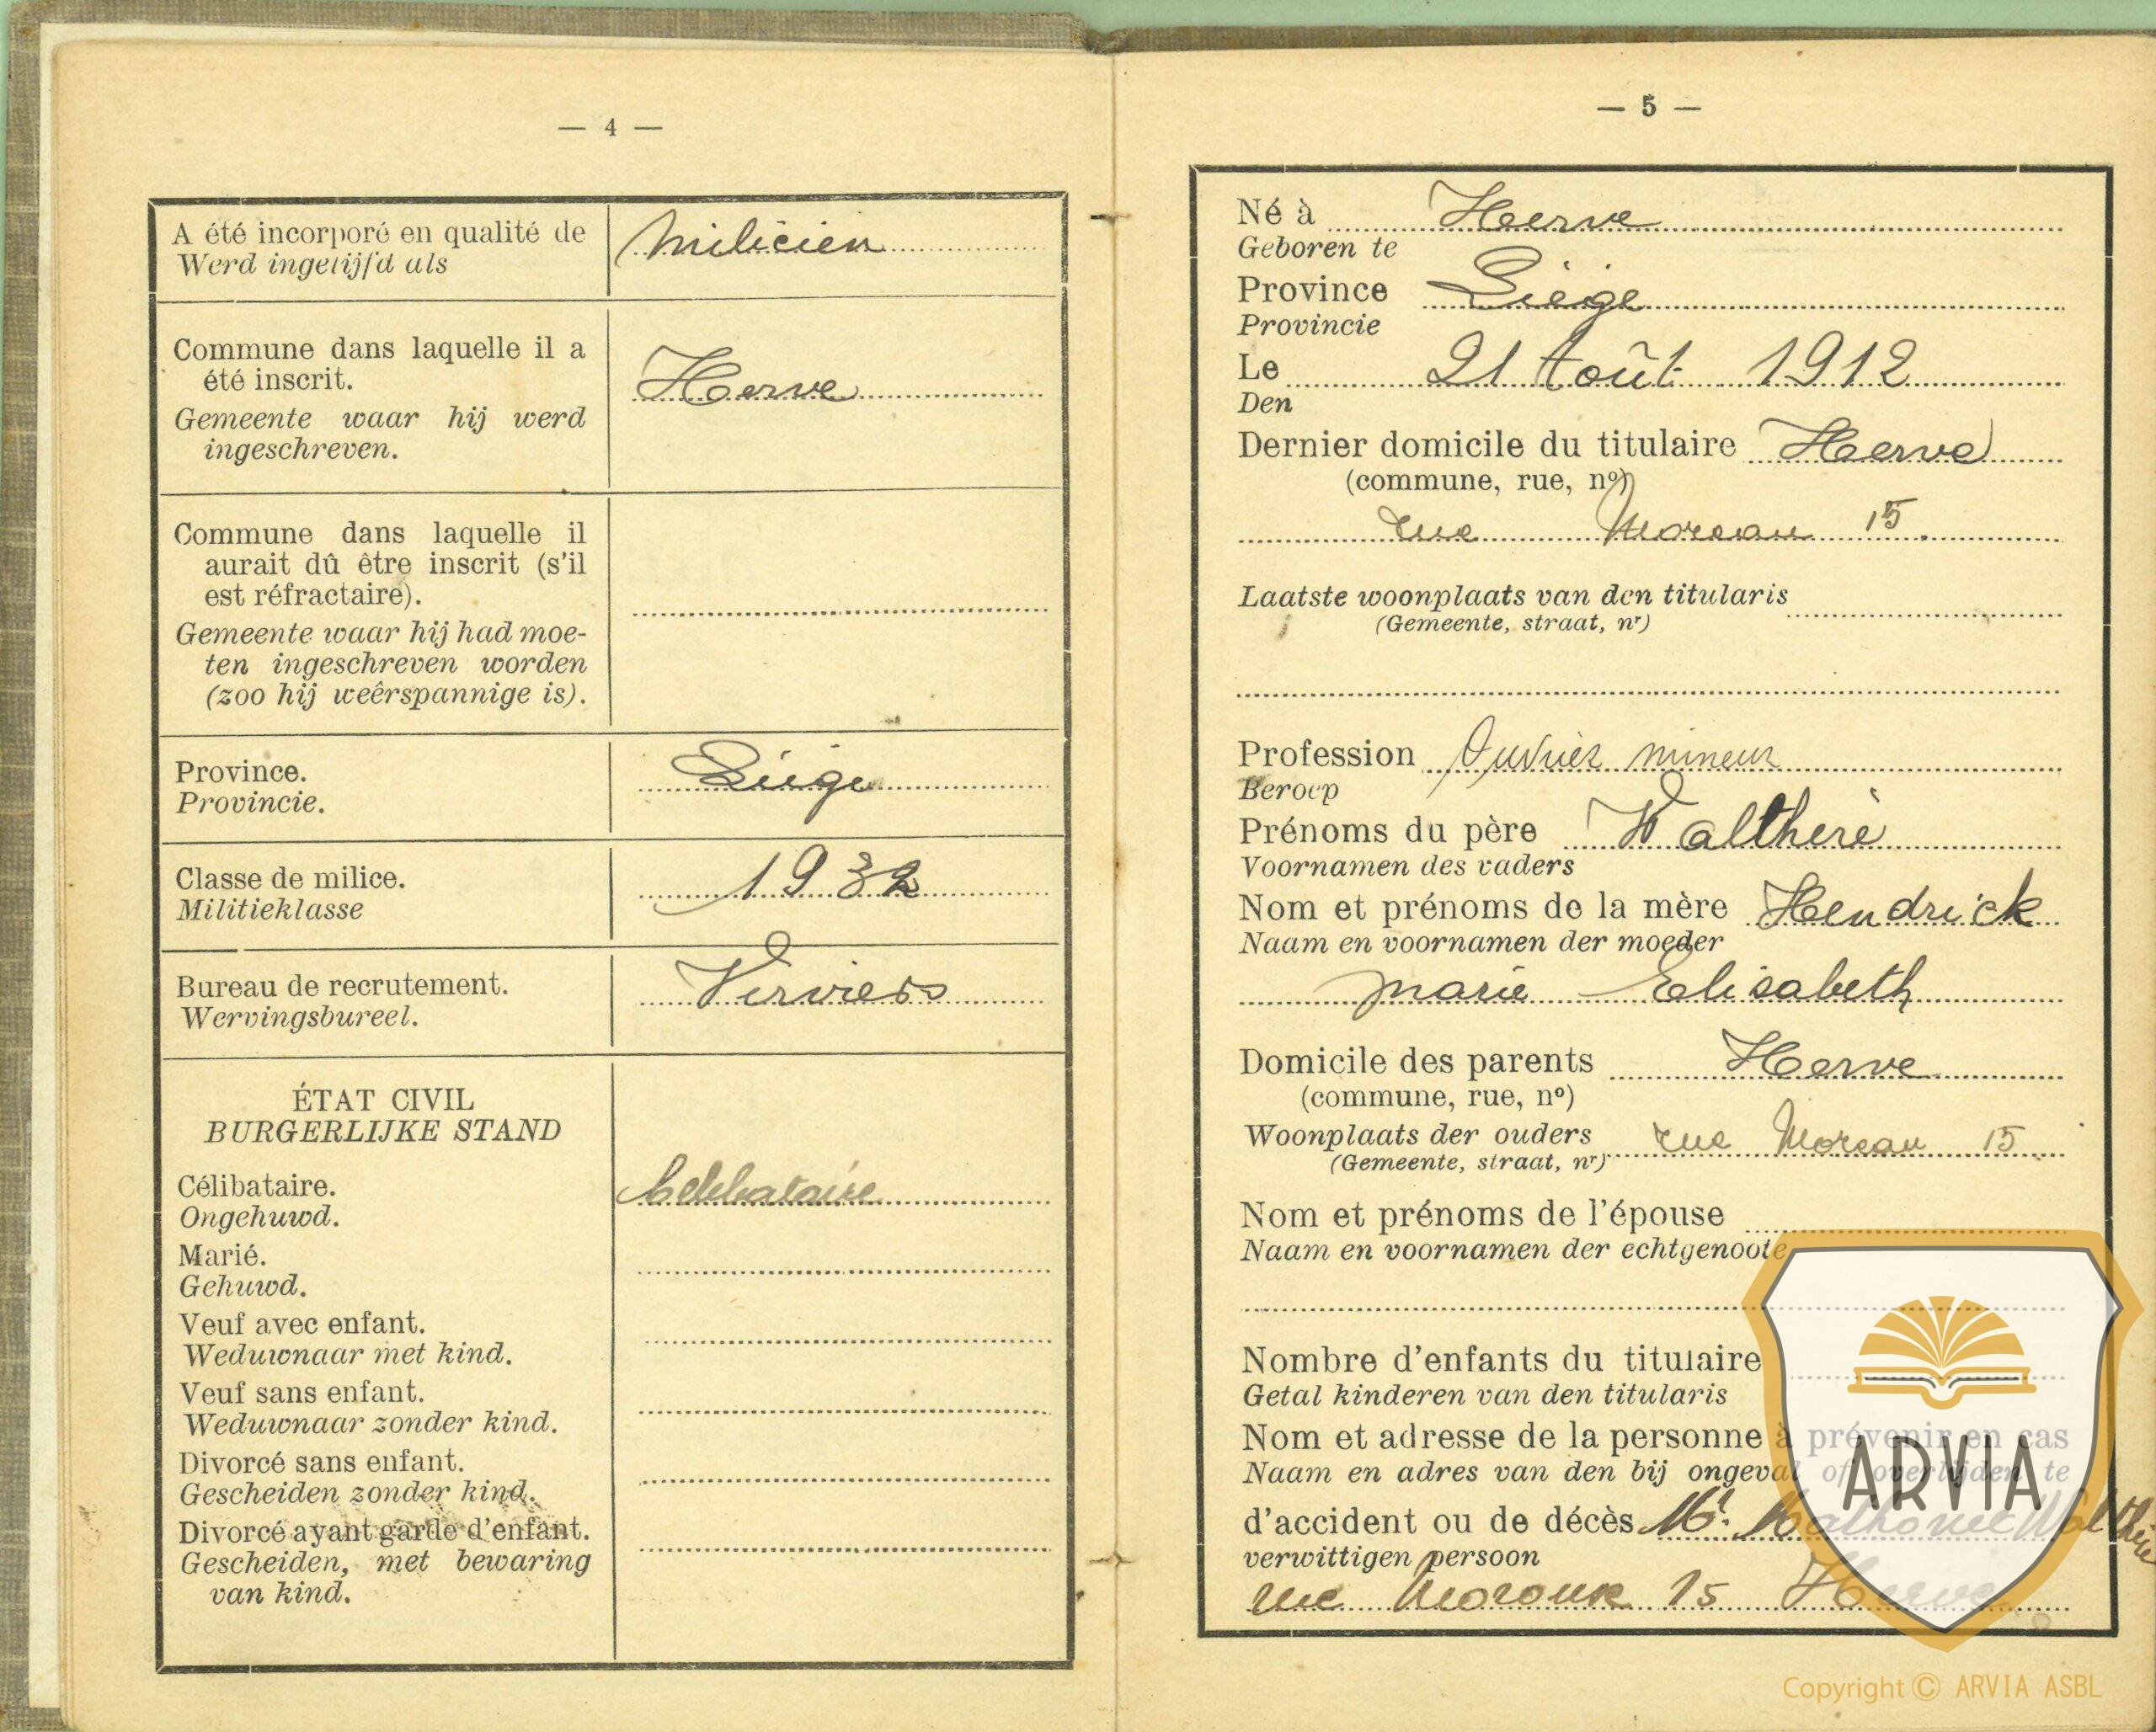 — 4 —
A été incorporé en qualité de Milicien
Werd ingelijfd als
Commune dans laquelle il a
été inscrit. Herve
Gemeente waar hij werd
ingeschreven.
Commune dans laquelle il
aurait dû être inscrit (s'il
est réfractaire).
Gemeente waar hij had moe-
ten ingeschreven worden
(zoo hij weêrspannige is).
Province. Liège
Provincie.
Classe de milice. 1932
Militieklasse
Bureau de recrutement. Verviers
Wervingsbureel.
ÉTAT CIVIL
BURGERLIJKE STAND
Célibataire. Celibataire
Ongehuwd.
Marié.
Gehuwd.
Veuf avec enfant.
Weduwnaar met kind.
Veuf sans enfant.
Weduwnaar zonder kind.
Divorcé sans enfant.
Gescheiden zonder kind.
Divorcé ayant garde d'enfant.
Gescheiden, met bewaring
van kind.
— 5 —
Né à Herve
Geboren te
Province Liège
Provincie
Le 21 Août 1912
Den
Dernier domicile du titulaire Herve
(commune, rue, nº)
rue Moreau 15.
Laatste woonplaats van den titularis
(Gemeente, straat, nr)
Profession Ouvrier mineur
Beroep
Prénoms du père Walthère
Voornamen des vaders
Nom et prénoms de la mère Hendrick
Naam en voornamen der moeder
Marie Elisabeth
Domicile des parents Herve
(commune, rue, nº)
Woonplaats der ouders rue Moreau 15
(Gemeente, straat, nr)
Nom et prénoms de l'épouse
Naam en voornamen der echtgenoote
Nombre d'enfants du titulaire
Getal kinderen van den titularis
Nom et adresse de la personne à prévenir en cas
Naam en adres van den bij ongeval of overlijden te
d'accident ou de décès Mr. Walthère
verwittigen persoon
rue 15 Herve
ARVIA
Copyright © ARVIA ASBL